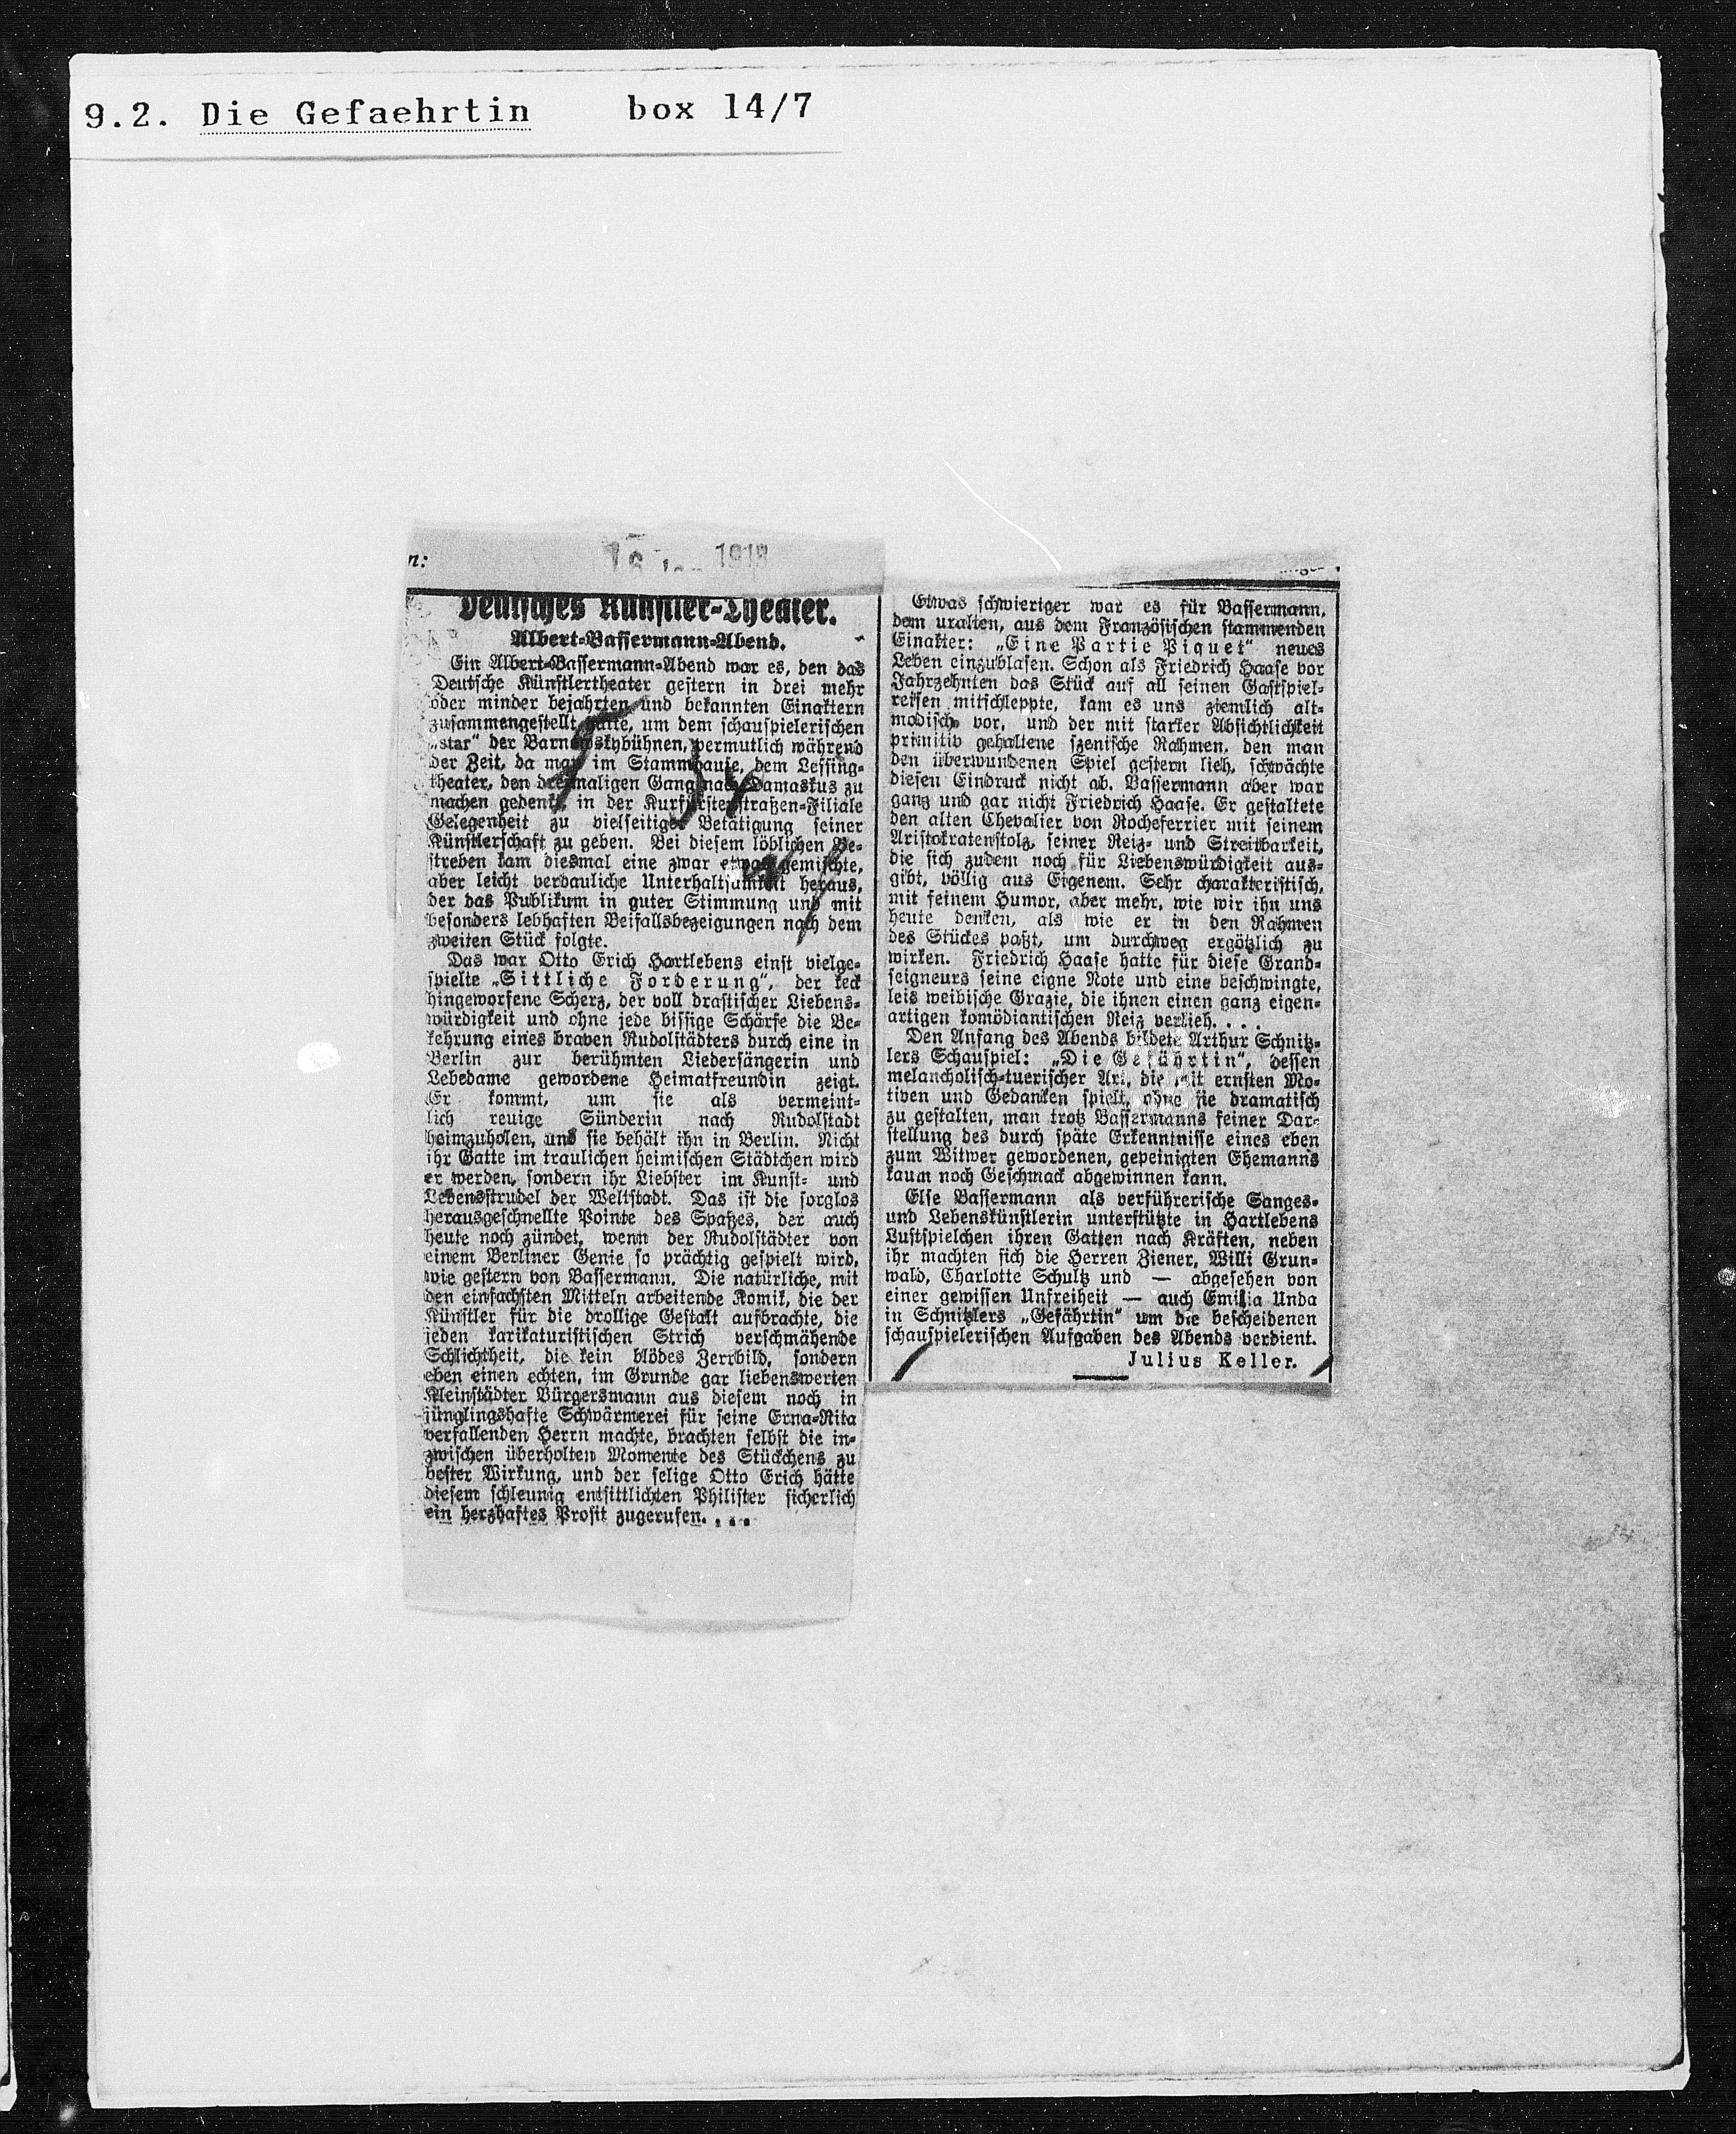 9.2. Die Gefaehrtin box 14/7
n:
16 1918
Deutsches Künstler-Theater.
Albert-Bassermann-Abend.
Ein Albert-Bassermann-Abend war es, den das
Deutsche Künstlertheater gestern in drei mehr
oder minder bejahrten und bekannten Einaktern
zusammengestellt hatte, um dem schauspielerischen
„star“ der Barnowskybühnen, vermutlich während
der Zeit, da man im Stammhause, dem Lessing-
theater, den dreimaligen Gang nach Damaskus zu
machen gedenkt, in der Kurfürstenstraßen-Filiale
Gelegenheit zu vielseitiger Betätigung seiner
Künstlerschaft zu geben. Bei diesem löblichen Be-
streben kam diesmal eine zwar etwas gemischte,
aber leicht verdauliche Unterhaltsamkeit heraus,
der das Publikum in guter Stimmung und mit
besonders lebhaften Beifallsbezeigungen nach dem
zweiten Stück folgte.
Das war Otto Erich Hartlebens einst vielge-
spielte „Sittliche Forderung“, der keck
hingeworfene Scherz, der voll drastischer Liebens-
würdigkeit und ohne jede bissige Schärfe die Be-
kehrung eines braven Rudolstädters durch eine in
Berlin zur berühmten Liedersängerin und
Lebedame gewordene Heimatfreundin zeigt.
Er kommt, um sie als vermeint-
lich reuige Sünderin nach Rudolstadt
heimzuholen, und sie behält ihn in Berlin. Nicht
ihr Gatte im traulichen heimischen Städtchen wird
er werden, sondern ihr Liebster im Kunst- und
Lebensstrudel der Weltstadt. Das ist die sorglos
herausgeschnellte Pointe des Spaßes, der auch
heute noch zündet, wenn der Rudolstädter von
einem Berliner Genie so prächtig gespielt wird,
wie gestern von Bassermann. Die natürliche, mit
den einfachsten Mitteln arbeitende Komik, die der
Künstler für die drollige Gestalt aufbrachte, die
jeden karikaturistischen Strich verschmähende
Schlichtheit, die kein blödes Zerrbild, sondern
eben einen echten, im Grunde gar liebenswerten
Kleinstädter Bürgersmann aus diesem noch in
jünglingshafte Schwärmerei für seine Erna-Rita
verfallenden Herrn machte, brachten selbst die in-
zwischen überholten Momente des Stückchens zu
bester Wirkung, und der selige Otto Erich hätte
diesem schleunig entsittlichten Philister sicherlich
ein herzhaftes Prosit zugerufen. . . .
Etwas schwieriger war es für Bassermann,
dem uralten, aus dem Französischen stammenden
Einakter: „Eine Partie Piquet“ neues
Leben einzublasen. Schon als Friedrich Haase vor
Jahrzehnten das Stück auf all seinen Gastspiel-
reisen mitschleppte, kam es uns ziemlich alt-
modisch vor, und der mit starker Absichtlichkeit
primitiv gehaltene szenische Rahmen, den man
den überwundenen Spiel gestern lieh, schwächte
diesen Eindruck nicht ab. Bassermann aber war
ganz und gar nicht Friedrich Haase. Er gestaltete
den alten Chevalier von Rocheferrier mit seinem
Aristokratenstolz, seiner Reiz- und Streitbarkeit,
die sich zudem noch für Liebenswürdigkeit aus-
gibt, völlig aus Eigenem. Sehr charakteristisch,
mit feinem Humor, aber mehr, wie wir ihn uns
heute denken, als wie er in den Rahmen
des Stückes paßt, um durchweg ergötzlich zu
wirken. Friedrich Haase hatte für diese Grand-
seigneurs seine eigne Note und eine beschwingte,
leis weibische Grazie, die ihnen einen ganz eigen-
artigen komödiantischen Reiz verlieh. . . .
Den Anfang des Abends bildete Arthur Schnitz-
lers Schauspiel: „Die Gefährtin“, dessen
melancholisch-tuerischer Art, die mit ernsten Mo-
tiven und Gedanken spielt, ohne sie dramatisch
zu gestalten, man trotz Bassermanns feiner Dar-
stellung des durch späte Erkenntnisse eines eben
zum Witwer gewordenen, gepeinigten Ehemanns
kaum noch Geschmack abgewinnen kann.
Else Bassermann als verführerische Sanges-
und Lebenskünstlerin unterstützte in Hartlebens
Lustspielchen ihren Gatten nach Kräften, neben
ihr machten sich die Herren Ziener, Willi Grun-
wald, Charlotte Schultz und — abgesehen von
einer gewissen Unfreiheit — auch Emilia Unda
in Schnitzlers „Gefährtin“ um die bescheidenen
schauspielerischen Aufgaben des Abends verdient.
Julius Keller.